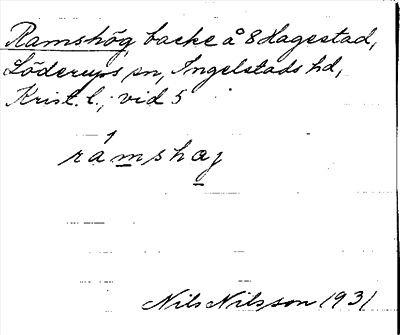 Ramshög, backe å 8 Hagestad,
Löderups sn, Ingelstads hd,
Krist. l., vid 5
rámshaj
Nils Nilsson 1931